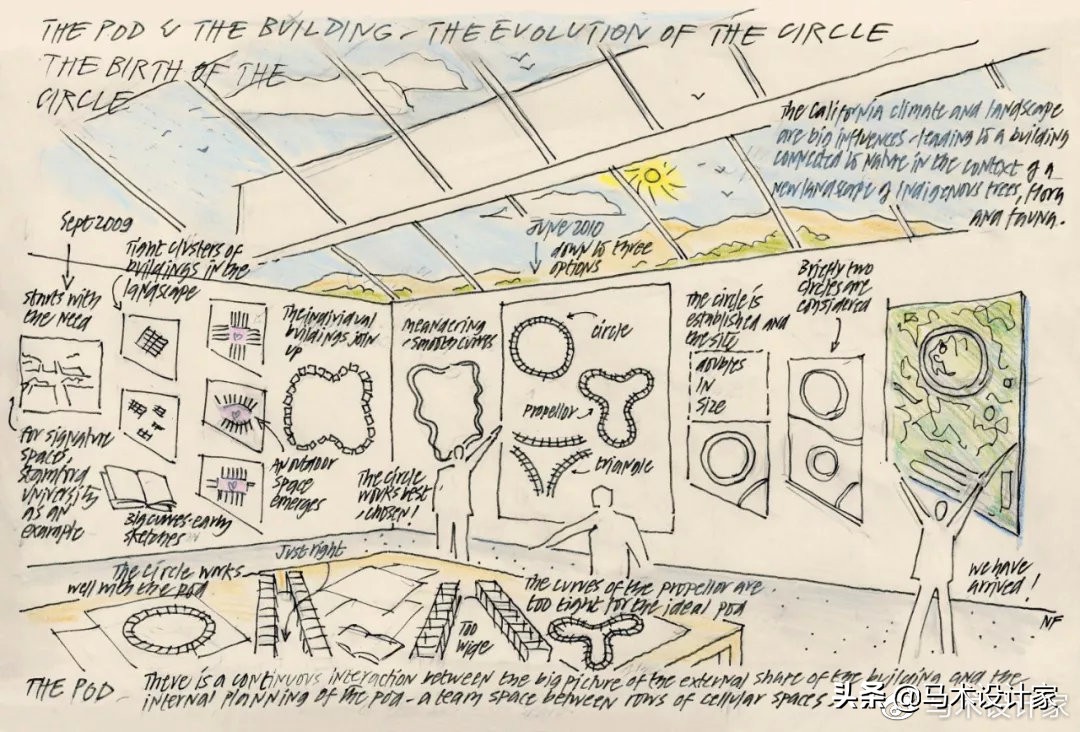 THE POD & THE BUILDING - THE EVOLUTION OF THE CIRCLE
THE BIRTH OF THE
CIRCLE
The California climate and landscape
are big influences - leading to a building
connected to nature in the context of a
new landscape of indigenous trees, flora
and fauna.
Sept 2009
starts with
the need
for signature
spaces,
Stamford
university
as an
example
Tight clusters of
buildings in the
landscape
Big curves - early
sketches
An outdoor
space
emerges
The individual
buildings join
up
meandering
- smooth curves
The circle
works best
, chosen!
June 2010
down to three
options
circle
propellor
triangle
The circle is
established and
the site
doubles
in
size
Briefly two
circles are
considered
we have
arrived!
NF
Just right
The circle works
well with the pod
Too
wide
The curves of the propellor are
too tight for the ideal pod
THE POD - There is a continuous interaction between the big picture of the external share of the building and the
internal planning of the pod - a team space between rows of cellular spaces
头条 @马术设计家
马术设计家